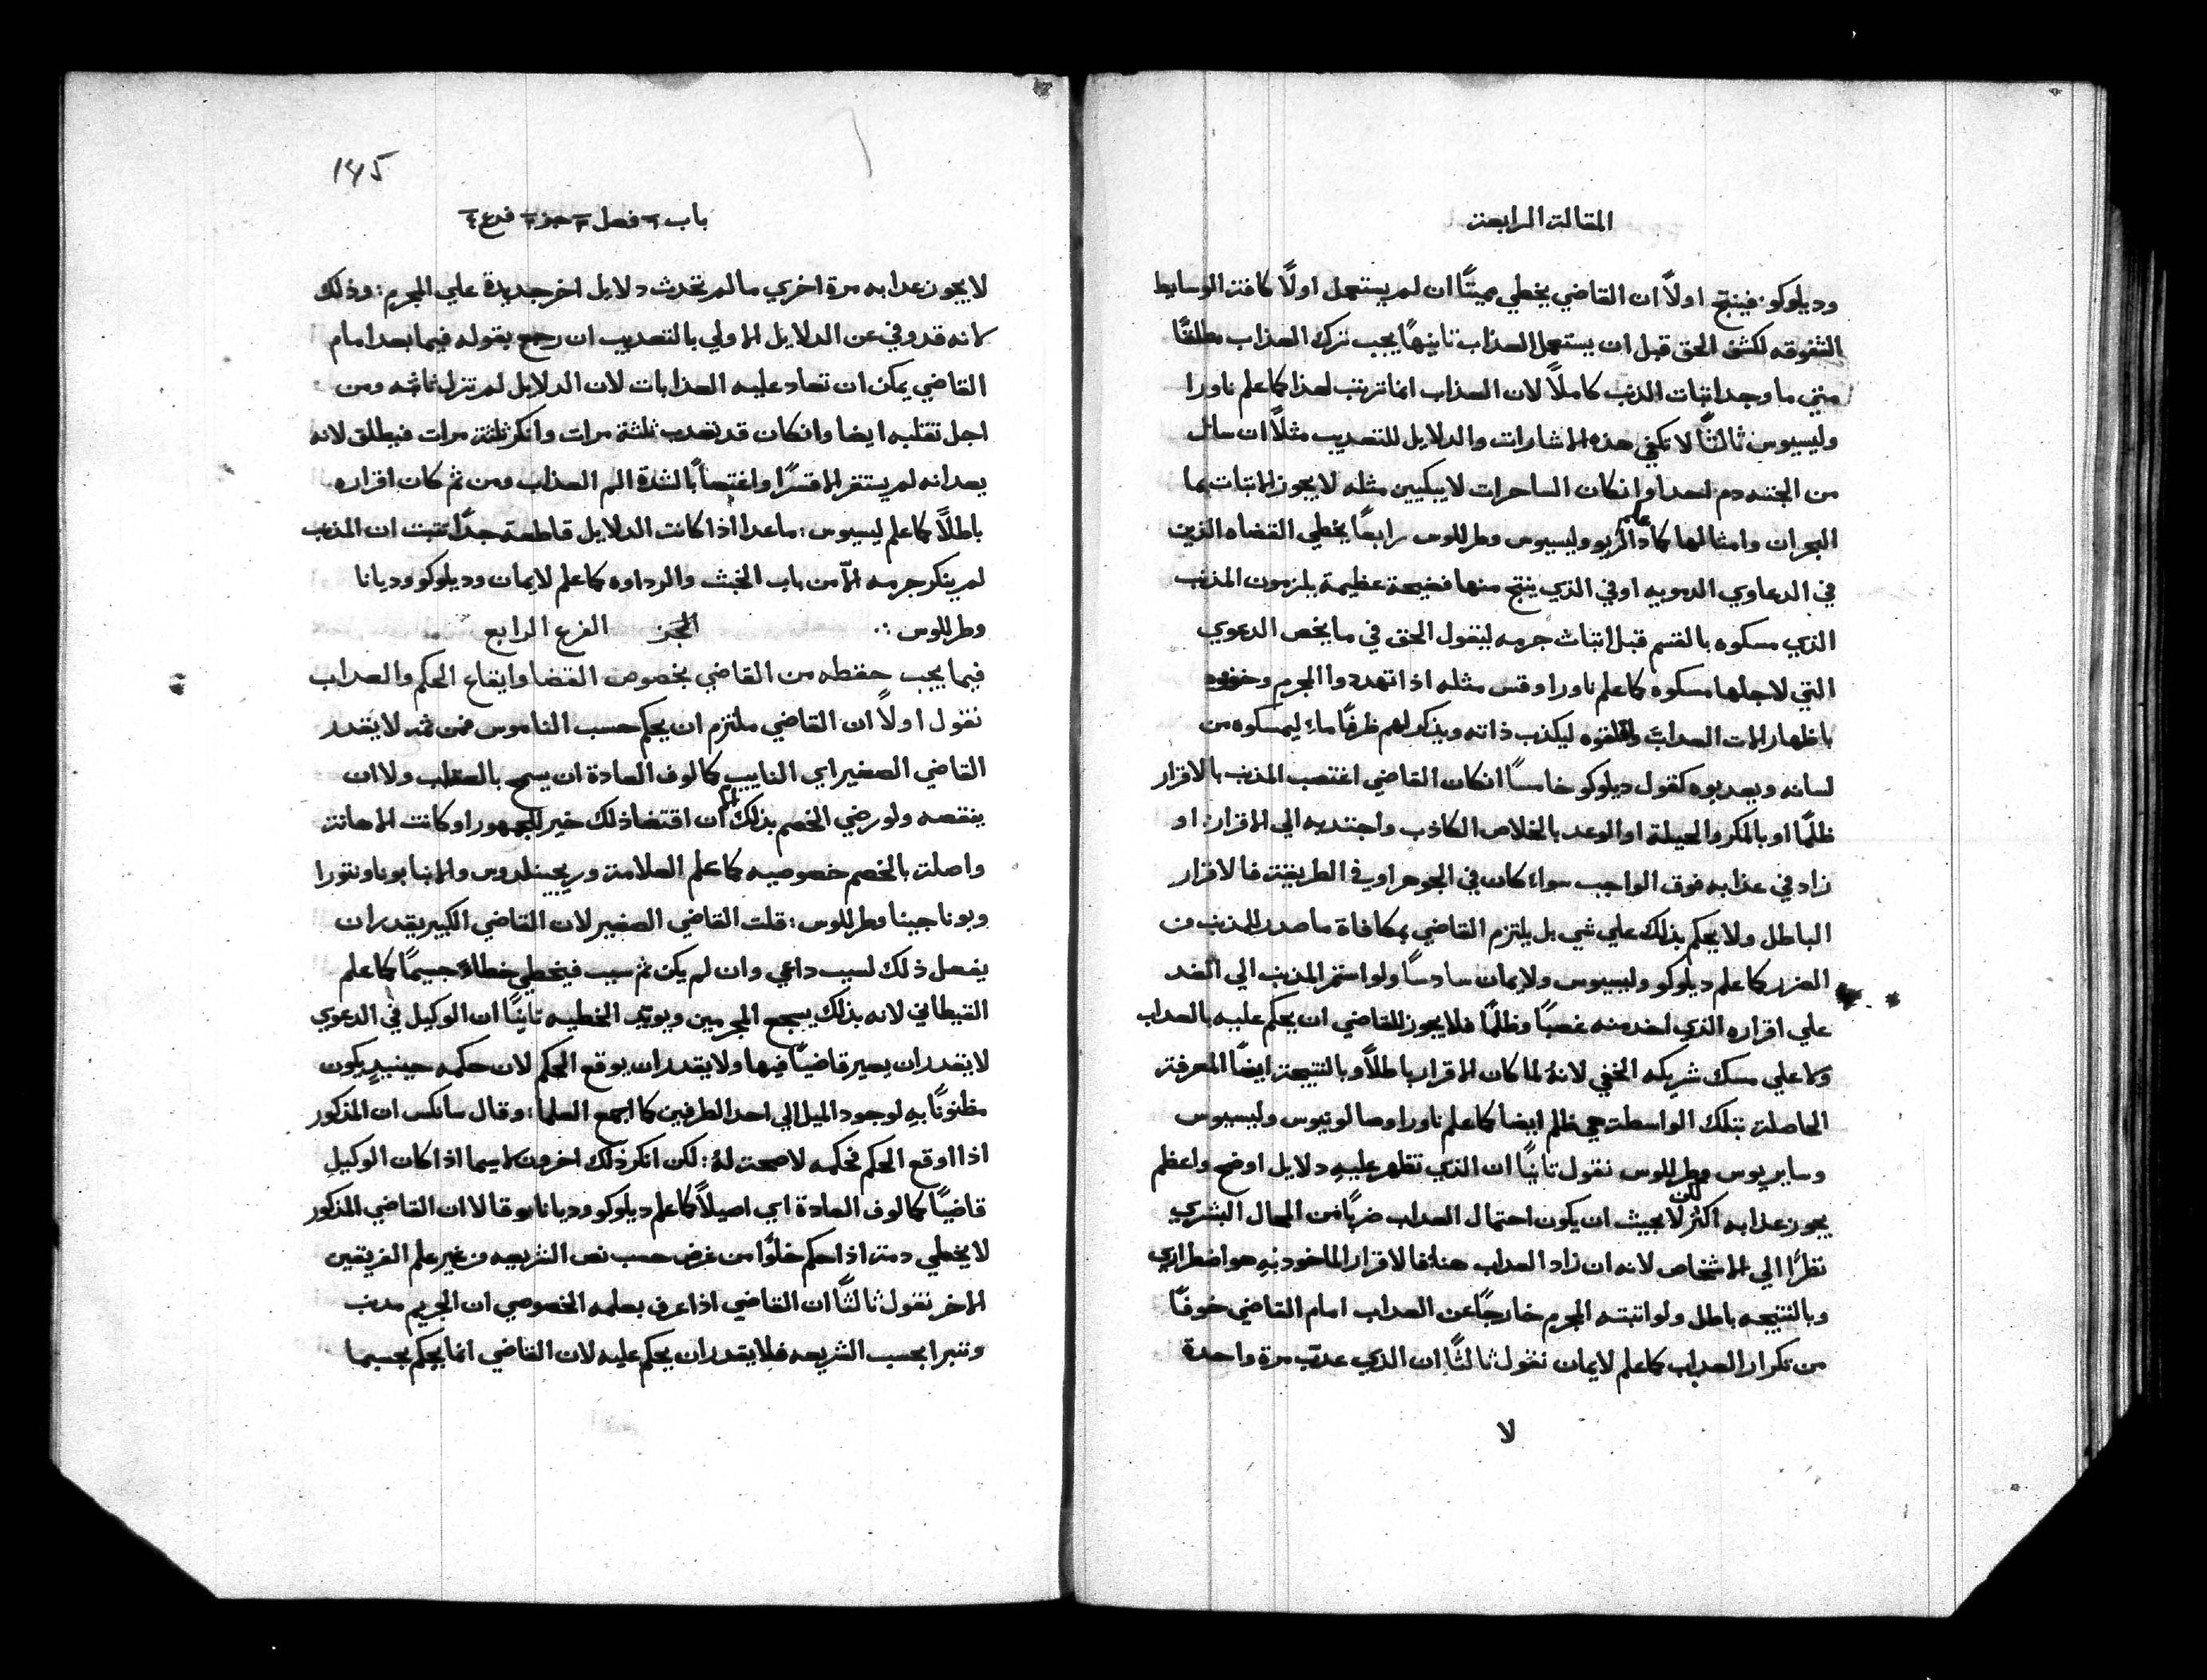 المقالة الرابعة
وديلوكو: فينتج اولاً ان القاضي يخطي مميتًا ان لم يستعمل اولاً كافة الوسايط
لكشف الحق قبل ان يستعمل العذاب ثانيهًا يجب ترك العذاب مطلقًا
متي ما وجد اثبات الذنب كاملاً لان العذاب انما ترتب لهذا كما علم ناورا
وليسيوس ثالثًا لا تكفي هذه الاشارات والدلايل للتعذيب مثلاً ان سال
من الجثه دم لعدا وانكان الساحرات لا يبكيين مثله لا يجوز الاثبات بما
البحران وامثالها كما علم دالريو وليسيوس وطرللوس رابعًا يخطي القضاه الذين
في الدعاوي الدمويه او في الذي ينتج منها فضيحة عظيمة يلزمون المذنب
الذي مسكوه بالقسم قبل اثبات جرمه ليقول الحق في ما يخص الدعوي
التي لاجلها مسكوه كما علم ناورا وقس مثله اذا تهددوا المجرم وخوفوه
باظهار الات العذاب واقلقوه ليكذب ذاته ويذكر لهم ظرفًا ما ليمسكوه من
لسانه ويعذبوه كقول ديلوكو خامسًا انكان القاضي اغتصب المذنب بالاقرار
ظلمًا او بالمكر والحيلة او الوعد بالخلاص الكاذب واجتذبه الي الاقرار: او
زاد في عذابه فوق الواجب سواء كان في الجوهر او في الطريقة فالاقرار
الباطل ولا يحكم بذلك علي شي بل يلتزم القاضي بمكافاة ما صدر للمذنب من
الضرر كما علم ديلوكو وليسيوس ولايمان سادسًا ولو استمر المذنب الي الغد
علي اقراره الذي اخذ منه غصبًا وظلمًا فلا يجوز للقاضي ان يحكم عليه بالعذاب
ولا علي مسك شريكه الخفي لانهُ لما كان الاقرار باطلاً وبالنتيجة ايضًا المعرفة
الحاصلة بتلك الواسطة هي ظلم ايضا كما علم ناورا وصالونيوس وليسيوس
وسايريوس وطرللوس نقول ثانيًا ان الذي تظهر عليهِ دلايل اوضح واعظم
يجوز عذابه اكثر لكن لا بحيث ان يكون احتمال العذاب ضربًا من المحال البشري
نظرًا الي الاشخاص لانه ان زاد العذاب هنا فالاقرار الماخوذ بهِ هو اضطراري
وبالنتيجه باطل ولو اثبته المجرم خارجًا عن العذاب امام القاضي خوفًا
من تكرار العذاب كما علم لايمان نقول ثالثًا ان الذي عذّب مرة واحدة
لا
145
باب ٦ فصل ٣ جز ٣ فرع ٤
لا يجوز عذابه مرة اخري ما لم تحدث دلايل اخر جديدة علي المجرم: وذلك
لانه قد وفي عن الدلايل الاولي بالتعذيب ان رجع بقوله فيما بعد امام
القاضي يمكن ان تعاد عليه العذابات لان الدلايل لم تزل ثابته ومن
اجل تقلبه ايضا وانكان قد تعذب ثلثة مرات وانكر ثلثة مرات فيطلق لانه
يعد انه لم يستقر الا قسرًا واغتصابًا لشدة الم العذاب ومن ثم كان اقراره
باطلاً كما علم ليسيوس: ما عدا اذا كانت الدلايل قاطعة جدًا تثبت ان المذنب
لم ينكر جرمه الاّ من باب الخبث والرداوه كما علم لايمان وديلوكو وديانا
وطرللوس ∴ الجز الفرع الرابع
فيما يجب حفظه من القاضي بخصوص القضا وايقاع الحكم والعذاب
نقول اولاً ان القاضي ملتزم ان يحكم حسب الناموس فمن ثمه لا يقدر
القاضي الصغير اي النايب كمالوف العادة ان يسمح بالعقاب ولا ان
ينقصه ولو رضي الخصم بذلك الا ان اقتضا ذلك خير الجمهور او كانت الاهانة
واصلة بالخصم خصوصيه كما علم العلامة وريجينلدوس والانبا بوناونتورا
وبوناجينا وطرللوس: قلت القاضي الصغير لان القاضي الكبير يقدر ان
يفعل ذلك لسبب داعي وان لم يكن ثم سبب فيخطي خطاءً جسيمًا كما علم
القيطاني لانه بذلك يسجع المجرمين ويويّد الخطيه ثانيًا ان الوكيل في الدعوي
لا يقدر ان يصير قاضيًا فيها ولا يقدر ان يوقع الحكم لان حكمه حينيدٍ يكون
مظنونًا بهِ لوجود الميل الي احد الطرفين كما اجمع العلما: وقال سانكس ان المذكور
اذا اوقع الحكم فحكمه لا صحة لهُ: لكن انكر ذلك اخرون لاسيما اذا كان الوكيل
قاضيًا كمالوف العادة اي اصيلاً كما علم ديلوكو وديانا بو قالا ان القاضي المذكور
لا يخطي دمة اذا حكم خلوًا من غرض حسب نص الشريعه من غير علم الفريقين
الاخر نقول ثالثًا ان القاضي اذا عرف بعلمه الخصوصي ان الجريم مدنب
وتبرا بحسب الشريعه فلا يقدر ان يحكم عليه لان القاضي انما يحكم بحسبما